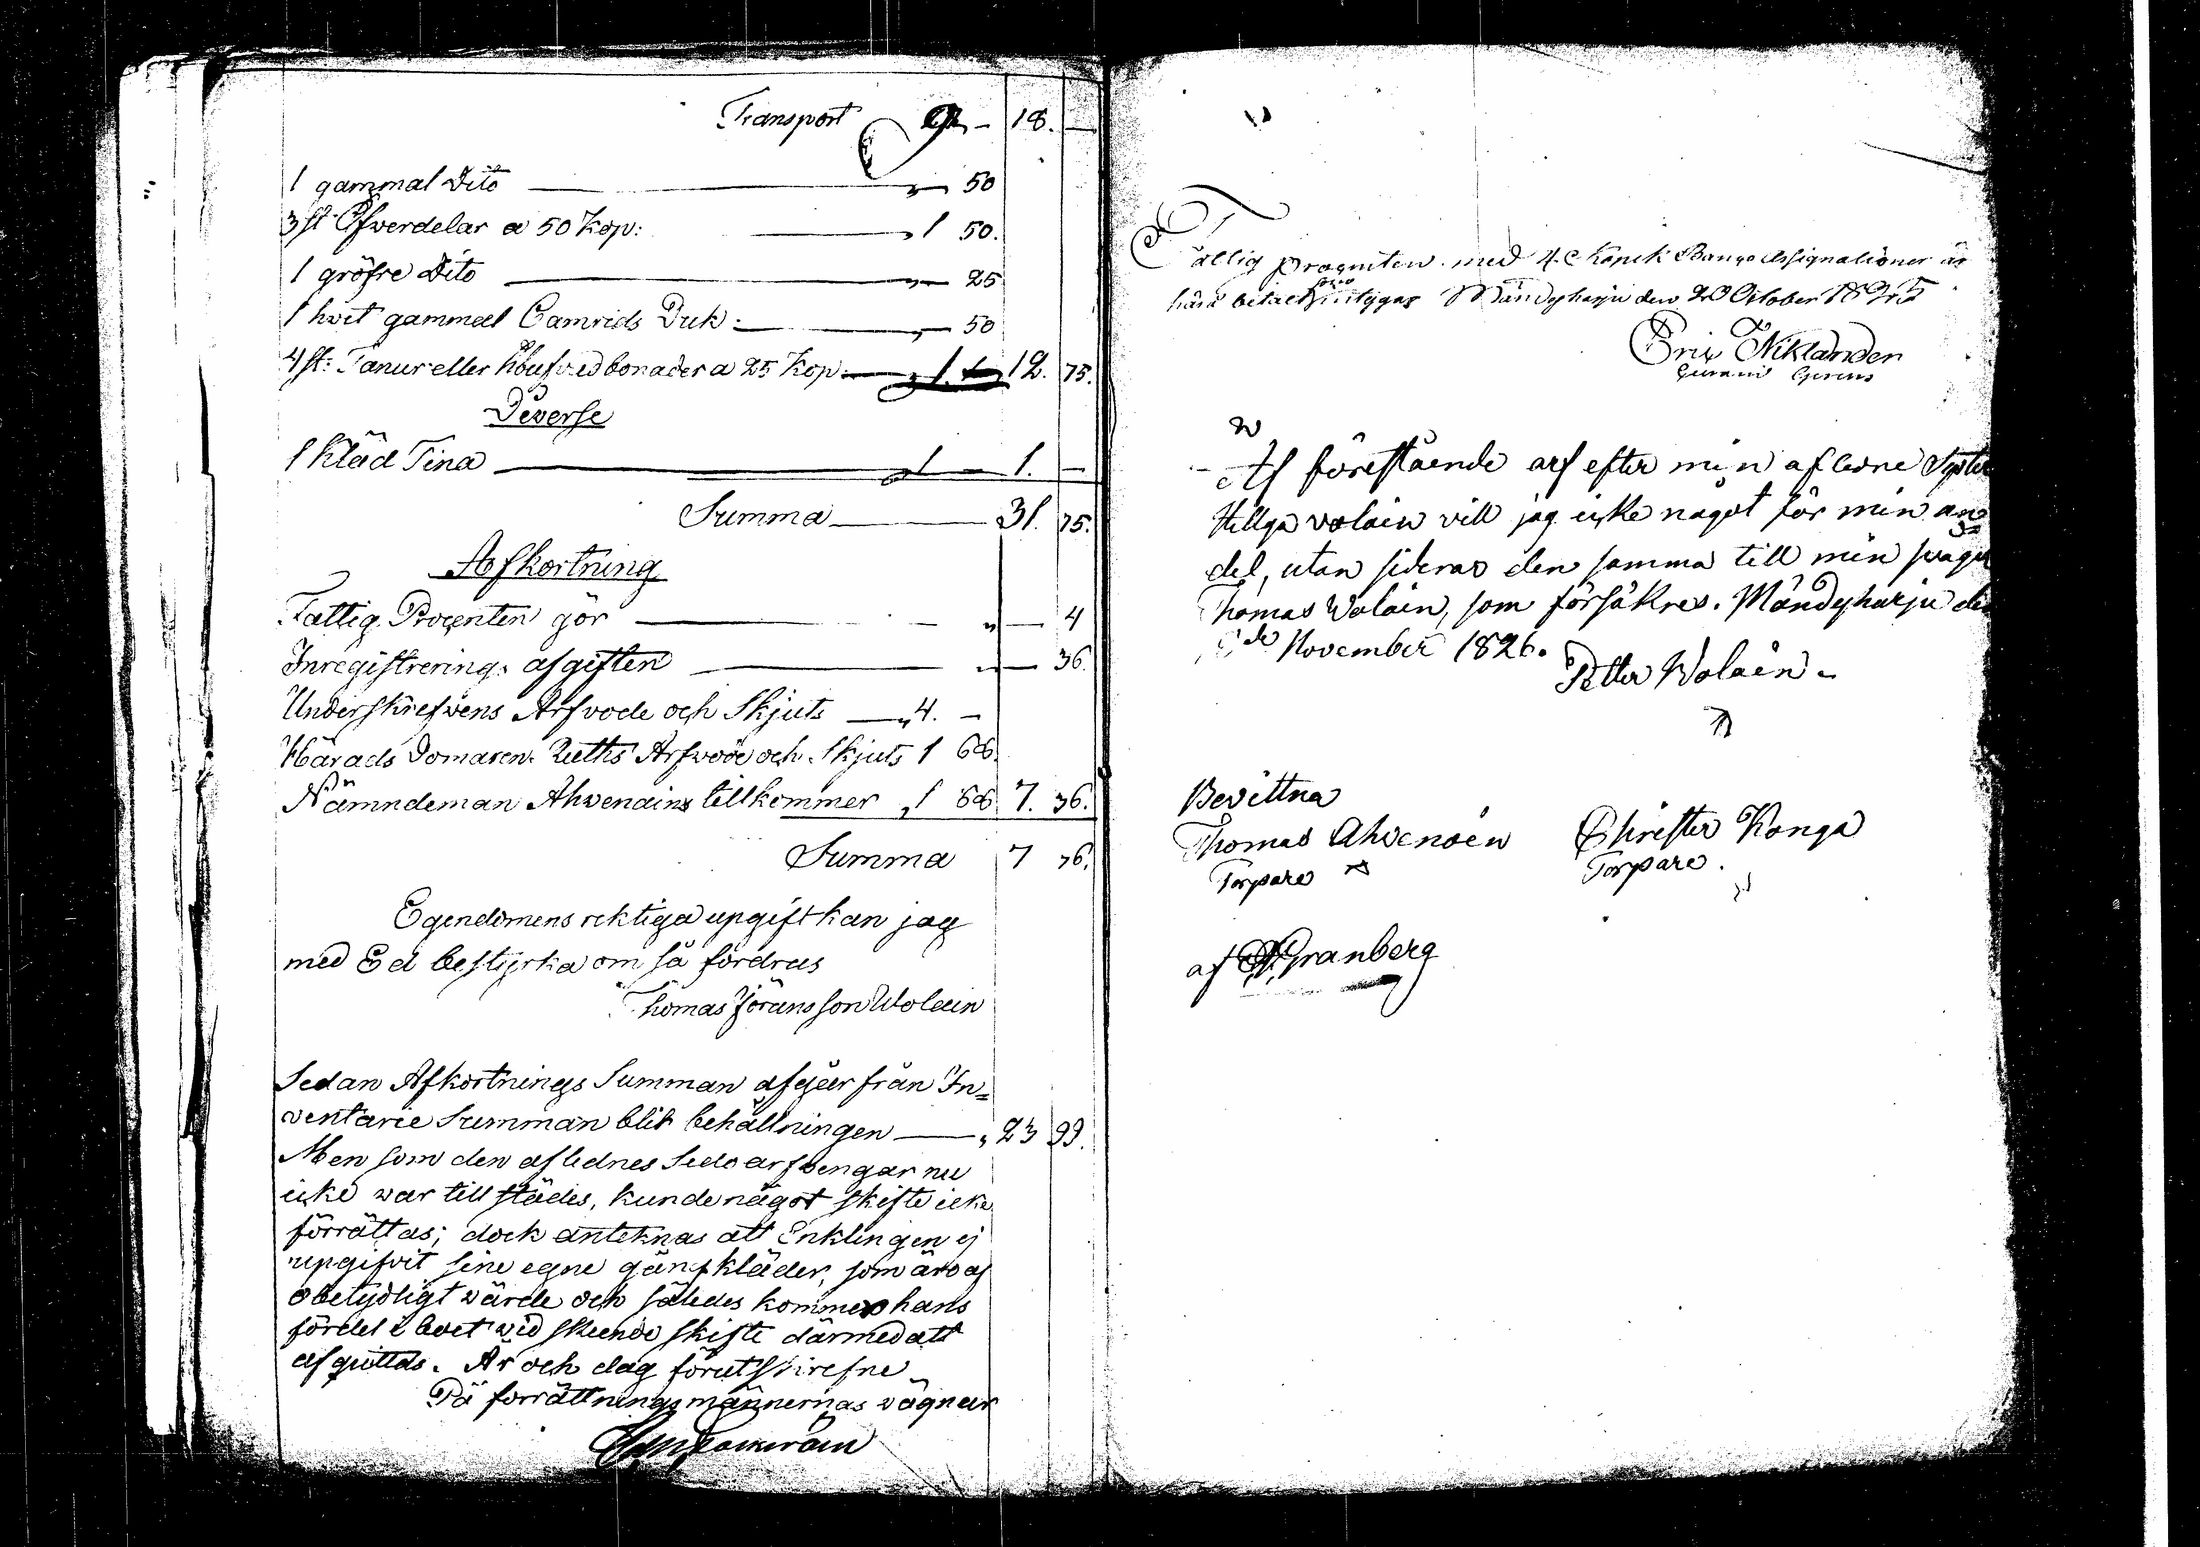 Transport 9 — 18. —
1 gammal Dito — „ — 50
3 st Öfwerdelar a 50 Kop: — „ 1 50.
1 gröfre Dito — „ — 25
1 hvit gammal Camrids Duk: — „ — 50
4 st: Tanur eller hbufvudbonader a 25 Kop — „ 1. — 12. 75.
Diverse
1 Kläd Tina — „ 1 — 1. —
Summa — 31. 75.
Afkortning
Fattig Procenten gör — „ — 4
Inregistrerings afgiften — „ — 36.
Underskrefwens Arfvode och Skjuts — „ 4. —
Härads Domaren Ruths Arfvode och Skjuts 1 68.
Nämndeman Ahvenains tillkommer „ 1 68 7. 76.
Summa 7 76.
Egendomens riktiga upgift kan jag
med Ed bestyrka om så fordras
Thomas Göransson Wolain
Sedan Afkortnings Summan afgår från In=
ventarie Summan blir behållningen — „ 23 99.
Men som den aflednes Sido arfvengar nu
icke war till städes, kunde något skifte icke
förrättas; dock anteknas att Enklingen ej
upgifvit sine egne gångkläder, som äro af
obetydligt wärde och således kommer hans
fördel i boet vid skeende skifte därmed att
afquittas. År och dag förutskrefne
På forrättningsmännernas vägnar
Fattig Procenten med 4 Kopek Banco Assignationer är
härå betalt som intygas Mändyharju den 20 October 1825
Eric Niklander
Af förestående arf efter min aflidne Syster
Hellga Wolain vill jag icke något för min an=
del, utan sideras den samma till min svåger
Thomas Wolain, som försäkras. Mändyharju den
de November 1826.
Petter Wolain.
Bevittna
Thomas Ahvenain Christer Konga
Torpare Torpare.
af Granberg